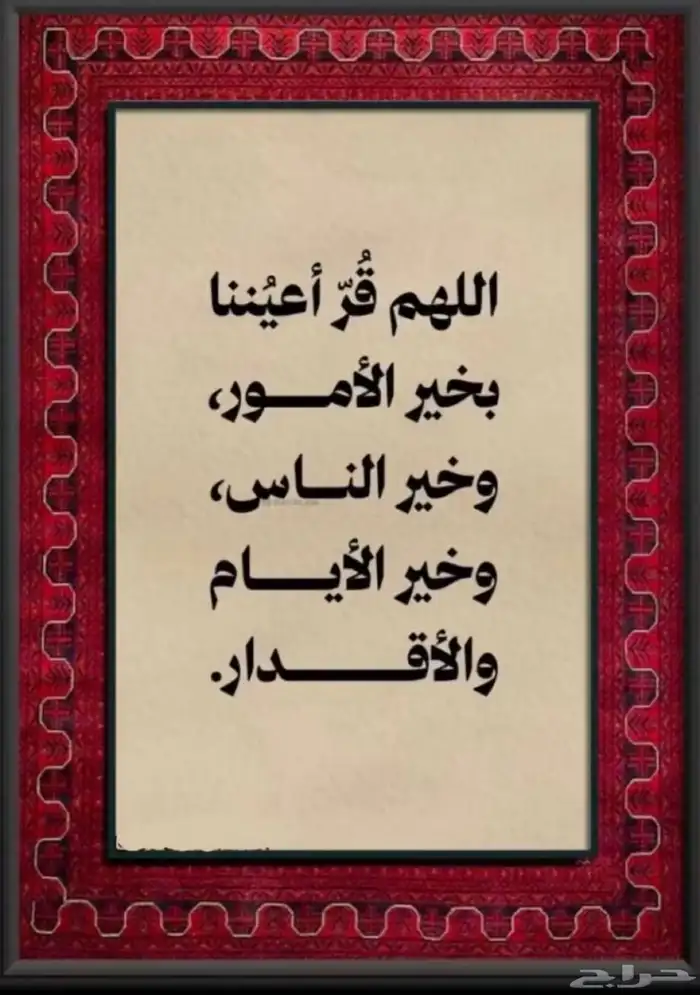 اللهم قُرّ أعيُننا
بخير الأمـــور،
وخير النـــاس،
وخير الأيـــام
والأقـــدار.
حراج